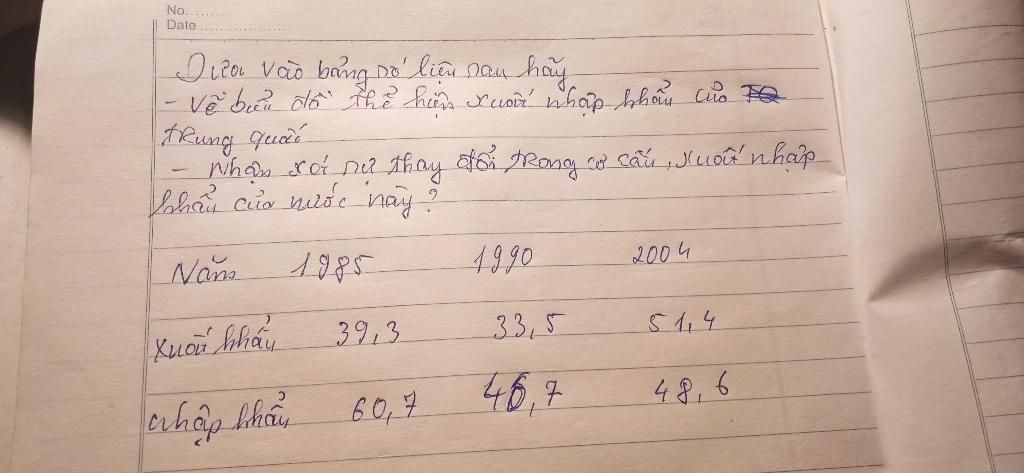 No.........
Date.....................
Dựa vào bảng số liệu sau hãy
- Vẽ biểu đồ thể hiện xuất nhập khẩu của TQ
trung quốc
- Nhận xét sự thay đổi trong cơ cấu, xuất nhập
khẩu của nước này?
Năm 1985 1990 2004
Xuất khẩu 39,3 33,5 51,4
nhập khẩu 60,7 46,7 48,6